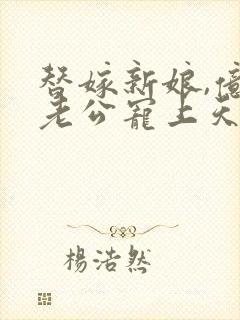 替嫁新娘,
老公寵上天
楊浩然